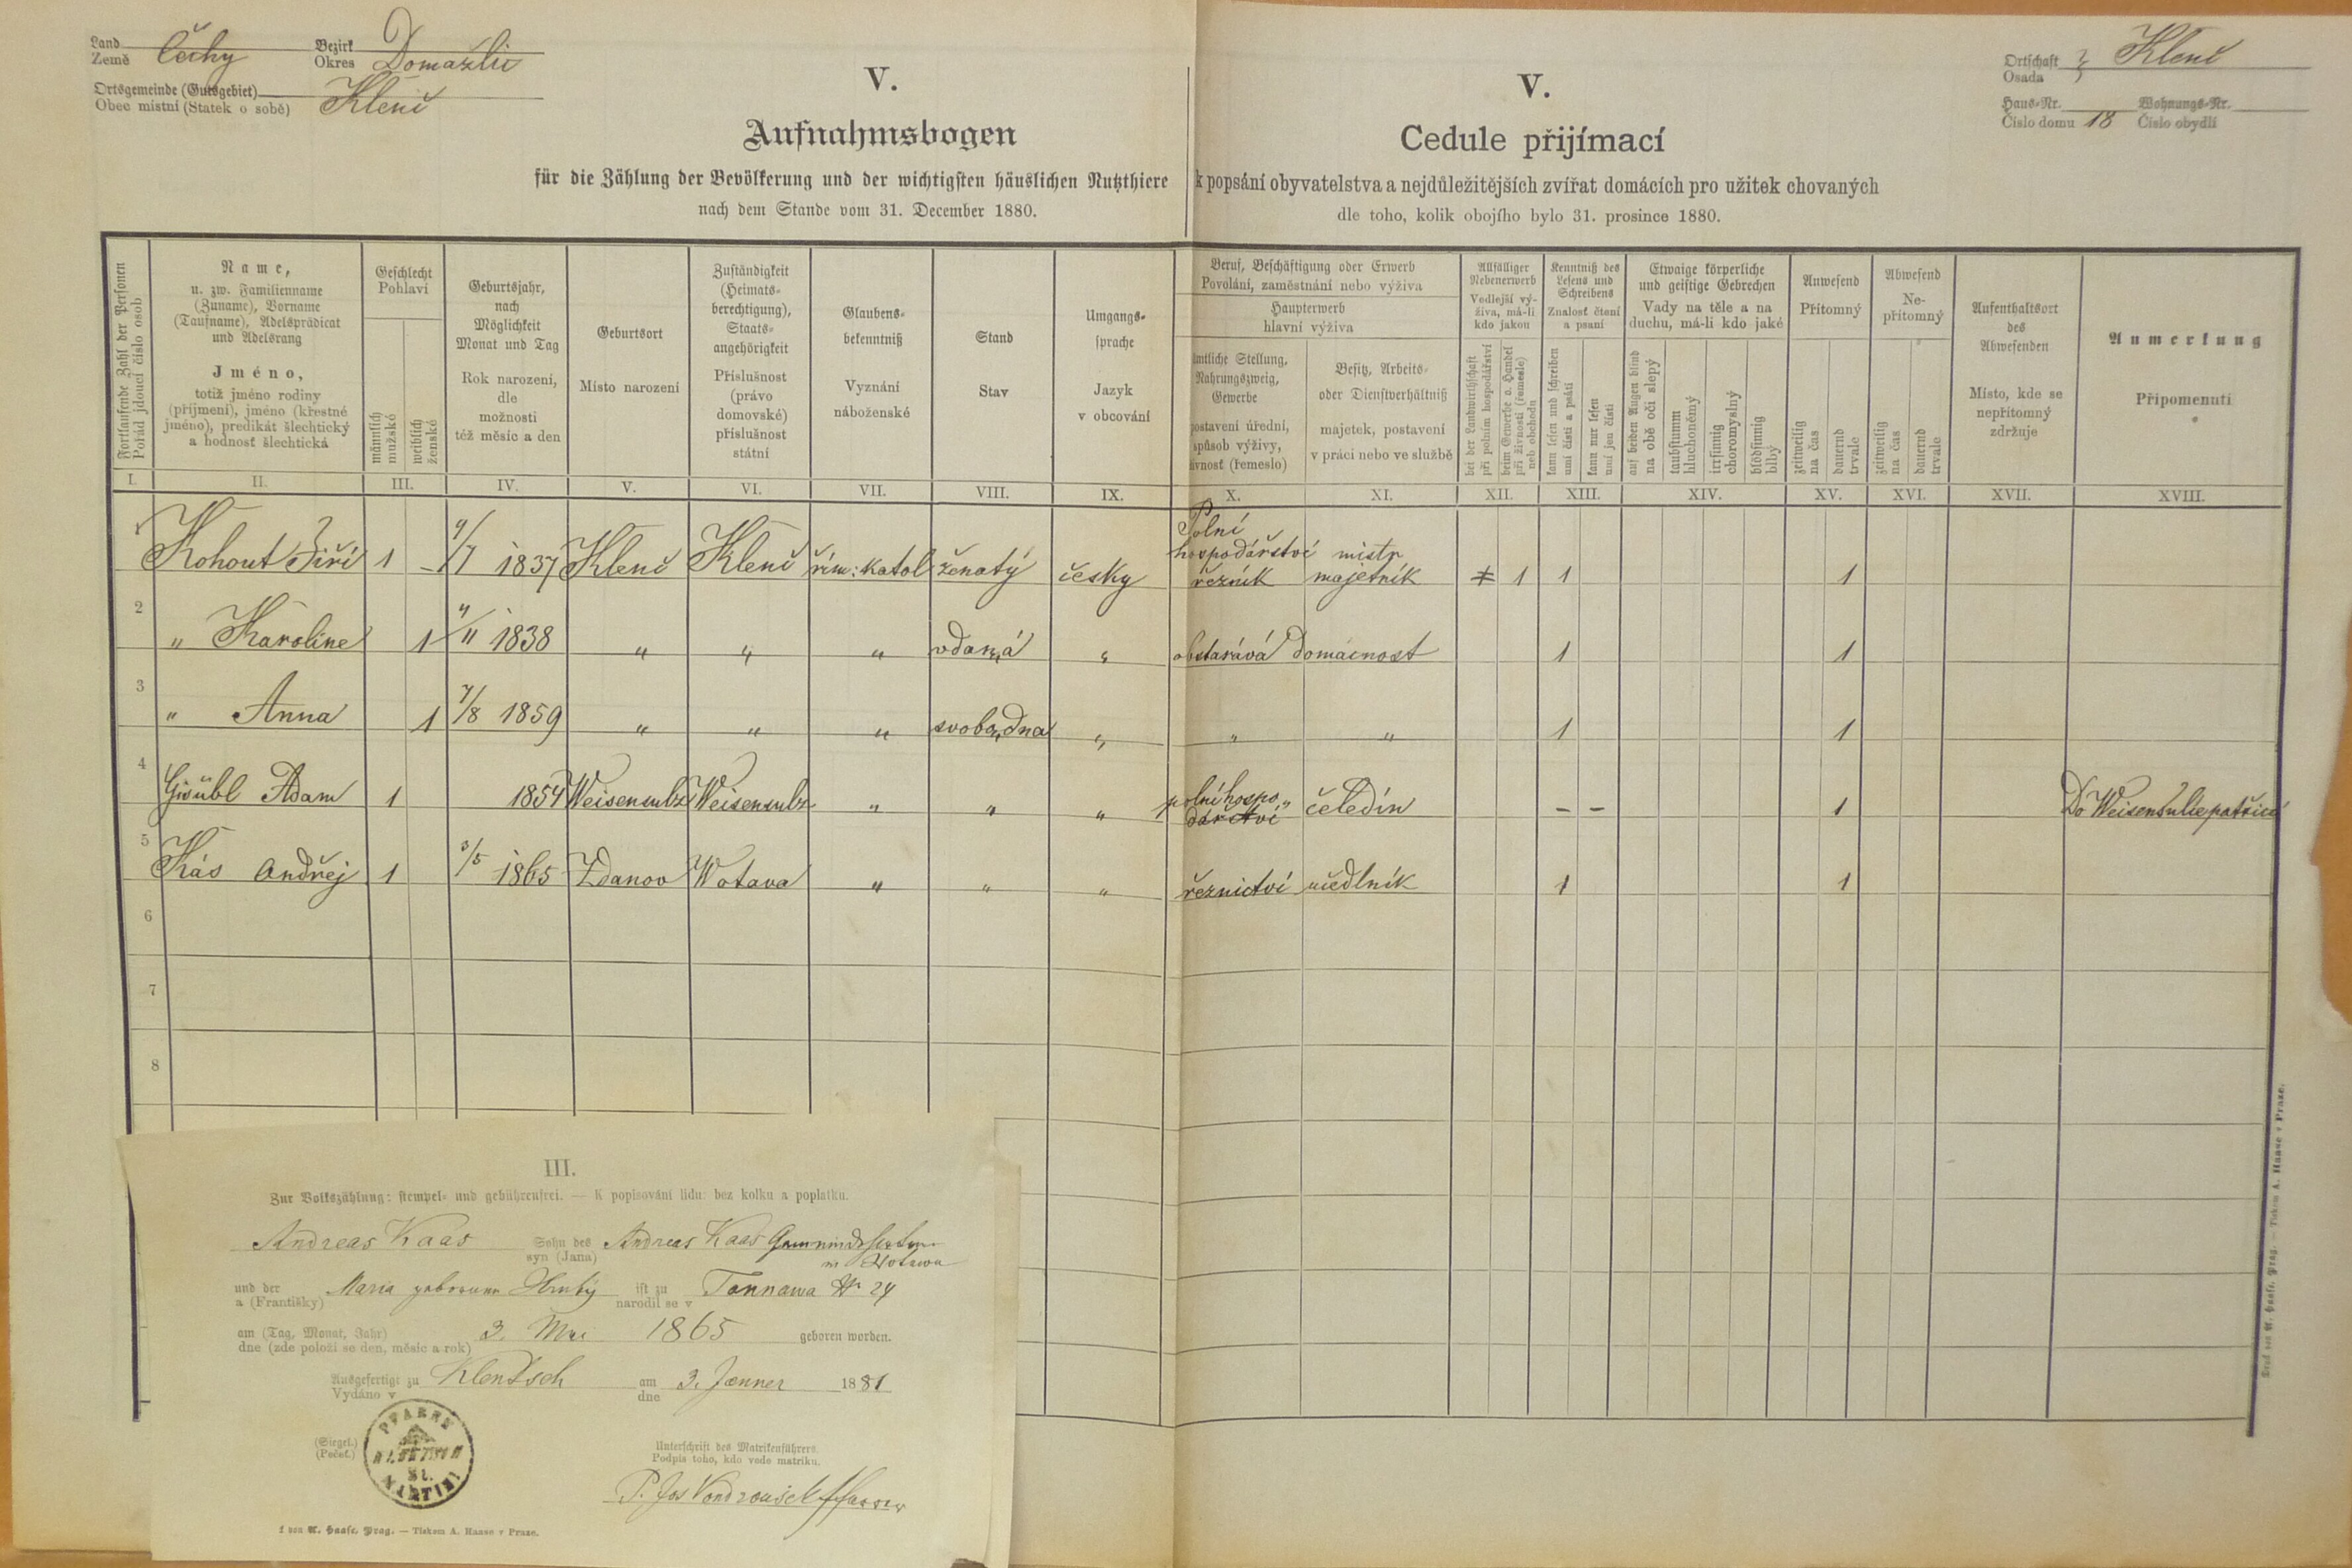 Land Čechy Bezirk Domažlic
Země Okres
Ortsgemeinde (Gutsgebiet) Klenč
Obec místní (Statek o sobě)
V.
Aufnahmsbogen
für die Zählung der Bevölkerung und der wichtigsten häuslichen Nutzthiere
nach dem Stande vom 31. December 1880.
V.
Cedule přijímací
k popsání obyvatelstva a nejdůležitějších zvířat domácích pro užitek chovaných
dle toho, kolik obojího bylo 31. prosince 1880.
Ortschaft Klenč
Osada
Haus-Nr. Wohnungs-Nr.
Číslo domu 18 Číslo obydlí
Fortlaufende Zahl der Personen
Pořád jdoucí číslo osob
Name,
u. zw. Familienname
(Zuname), Vorname
(Taufname), Adelsprädicat
und Adelsrang
Jméno,
totiž jméno rodiny
(příjmení), jméno (křestné
jméno), predikát šlechtický
a hodnosť šlechtická
Geschlecht
Pohlaví
männlich
mužské
weiblich
ženské
Geburtsjahr,
nach
Möglichkeit
Monat und Tag
Rok narození,
dle
možnosti
též měsíc a den
Geburtsort
Místo narození
Zuständigkeit
(Heimats-
berechtigung),
Staats-
angehörigkeit
Příslušnost
(právo
domovské)
příslušnost
státní
Glaubens-
bekenntniß
Vyznání
náboženské
Stand
Stav
Umgangs-
sprache
Jazyk
v obcování
Beruf, Beschäftigung oder Erwerb
Povolání, zaměstnání nebo výživa
Haupterwerb
hlavní výživa
amtliche Stellung,
Nahrungszweig,
Gewerbe
postavení úřední,
spůsob výživy,
živnosť (řemeslo)
Besitz, Arbeits-
oder Dienstverhältniß
majetek, postavení
v práci nebo ve službě
Allfälliger
Nebenerwerb
Vedlejší vý-
živa, má-li
kdo jakou
bei der Landwirthschaft
při polním hospodářství
beim Gewerbe o. Handel
při živnosti (řemesle)
neb obchodu
Kenntniß des
Lesens und
Schreibens
Znalosť čtení
a psaní
kann lesen und schreiben
umí čísti a psáti
kann nur lesen
umí jen čísti
Etwaige körperliche
und geistige Gebrechen
Vady na těle a na
duchu, má-li kdo jaké
auf beiden Augen blind
na obě oči slepý
taubstumm
hluchoněmý
irrsinnig
choromyslný
blödsinnig
blbý
Anwesend
Přítomný
zeitweilig
na čas
dauernd
trvale
Abwesend
Ne-
přítomný
zeitweilig
na čas
dauernd
trvale
Aufenthaltsort
des
Abwesenden
Místo, kde se
nepřítomný
zdržuje
Anmerkung
Připomenutí
I. II. III. IV. V. VI. VII. VIII. IX. X. XI. XII. XIII. XIV. XV. XVI. XVII. XVIII.
Polní
hospodářství mistr
1 Kohout Jiří 1 – 4/7 1837 Klenč Klenč řím: katol ženatý česky řezník majetník 1 1 1
2 „ Karoline 1 4/11 1838 „ „ „ vdaná „ obstarává domácnost 1 1
3 „ Anna 1 7/8 1859 „ „ „ svobodna „ „ „ 1 1
4 Adam 1 1854 Weisensulz Weisensulz „ „ „ polní hospo„ čeledín – – 1
dářství
5 Kás Andřej 1 3/5 1865 Ždanov Wotava „ „ „ řeznictví učedlník 1 1
6
7
8
III.
Zur Volkszählung: stempel- und gebührenfrei. — K popisování lidu: bez kolku a poplatku.
Andreas Kaas Sohn des Andreas Kaas
syn (Jana) in Wotawa
und der Maria geborene Hrubý ist zu Tannawa Nr 24
a (Františky) narodil se v
am (Tag, Monat, Jahr) 3. Mai 1865 geboren worden.
dne (zde položí se den, měsíc a rok)
Ausgefertigt zu Klentsch am 3. Jänner 1881
Vydáno v dne
(Siegel.)
(Pečeť.)
PFARRE
KLENTSCH
St.
MARTINI
Unterschrift des Matrikenführers.
Podpis toho, kdo vede matriku.
P. Jos Vondrouschek Pfarrer
von A. Haase, Prag. — Tiskem A. Haase v Praze.
Druck von A. Haase, Prag. — Tiskem A. Haase v Praze.